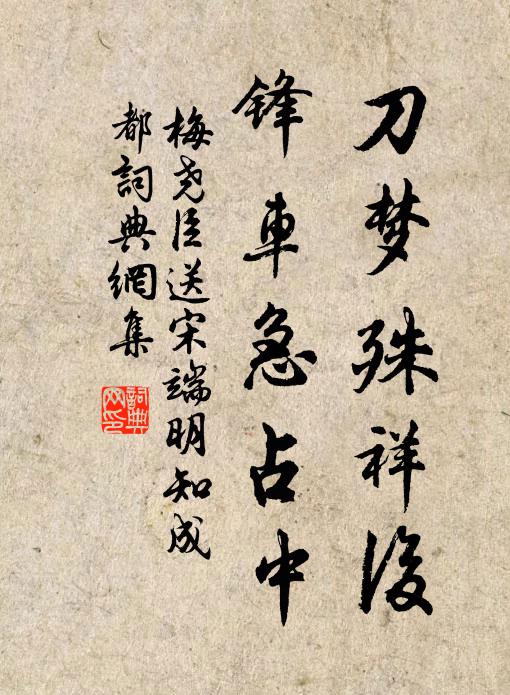 刀梦殊祥后
锋車急占中
梅尧臣送宋端明知成
都詞典網集
詞典网印